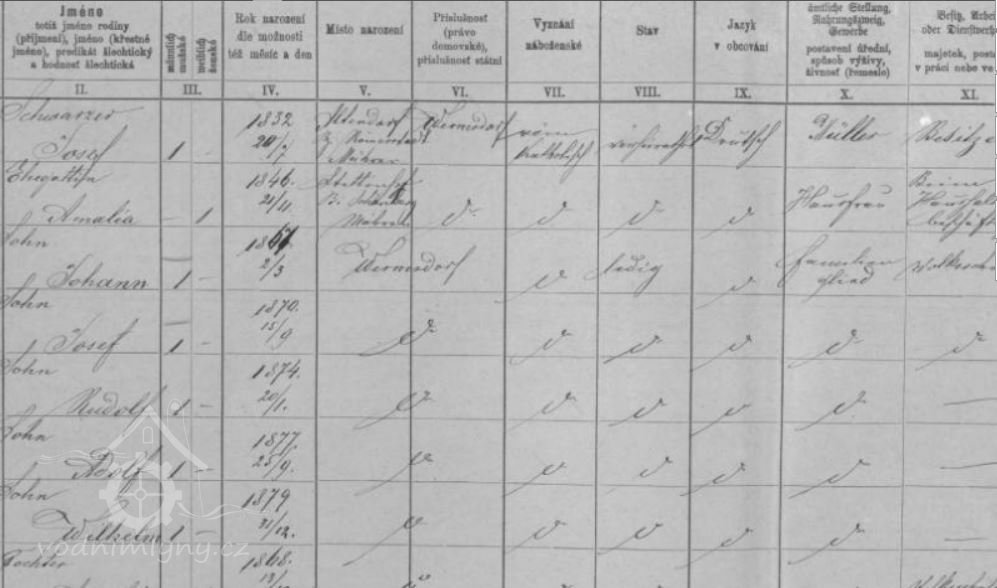 Jméno
totiž jméno rodiny
(příjmení), jméno (křestné
jméno), predikát šlechtický
a hodnost šlechtická
männlich
mužské
weiblich
ženské
Rok narození
dle možnosti
též měsíc a den
Místo narození
Příslušnost
(právo
domovské),
příslušnost státní
Vyznání
náboženské
Stav
Jazyk
v obcování
ämtliche Stellung,
Nahrungszweig,
Gewerbe
postavení úřední,
spůsob výživy,
živnost (řemeslo)
Besitz, Arbei
oder Dienstverhä
majetek, posta
v práci nebo ve
II. III. IV. V. VI. VII. VIII. IX. X. XI.
Schwarzer
Josef 1 -
1832
Wermsdorf
röm
Katholisch
Deutsch
Müller
Besitze
Ehegattin
Amalia - 1
1846.
21/11.
Mähren
d d d d
Hausfrau
Beim
Haushalt
beschäft
Sohn
Johann 1 -
2/3
Wermsdorf
d ledig d
Familien
glied
Sohn
Josef 1 -
1870.
15/9
d d d d d d
Sohn
Rudolf 1 -
1874.
20/1.
d d d d d —
Sohn
Adolf 1 -
1877.
25/9.
d d d d d —
Sohn
Wilhelm 1 -
1879
d d d d d —
Tochter
1868.
vodnimlyny.cz